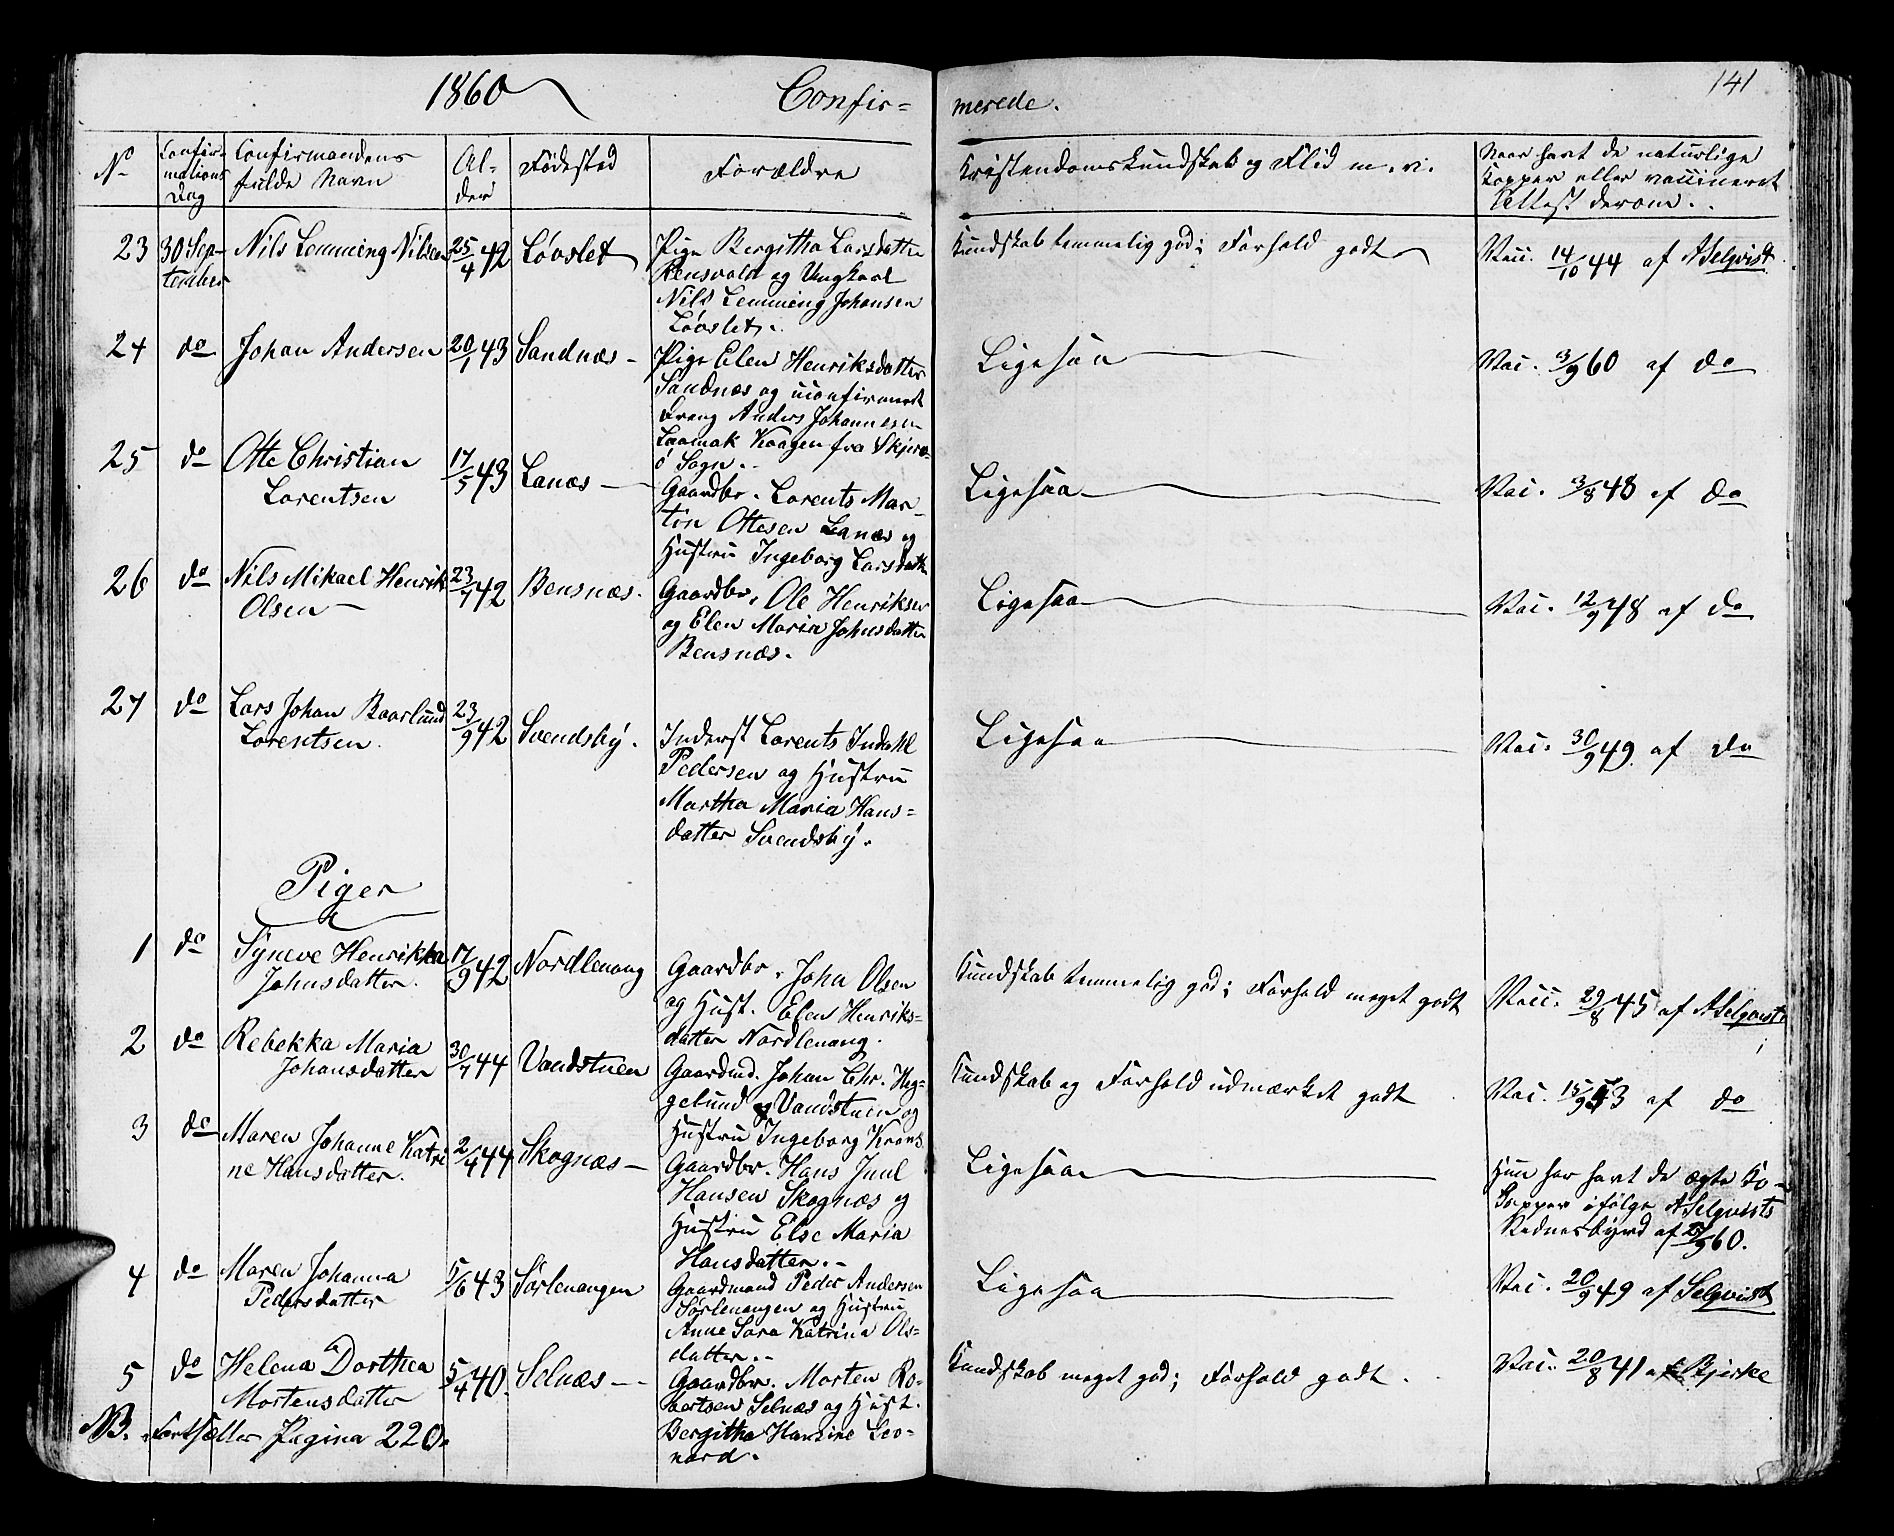 1860 Confir= merede. 141
No Confir- mations Dag Confirmandens fulde Navn Al- der Fødested Forældre Kristendomskundskab og Flid m. v. Naar havt de naturlige Kopper eller vaccineret Attest derom..
23 30 Sep- tember Nils Lemming Nilsen 25/4 42 Løvslet Pige Bergitha Larsdatter
Rensvold og Ungkarl
Nils Lemming Johansen
Løvslet.
Kundskab temmelig god; Forhold godt Vacc. 14/10 44 af A Selqvist.
24 do Johan Andersen 20/1 43 Sandnæs - Pige Elen Henriksdatter
Sandnæs og uconfirmeret
Dreng Anders Johannesen
Laamak Kaagen fra Skjerv-
ø Sogn.-
Ligesaa Vac. 3/9 60 af do
25 do Otte Christian
Lorentsen
17/5 43 Lanæs - Gaardbr. Lorents Mar-
tin Ottesen Lanæs og
Hustru Ingeborg Larsdatter
Ligesaa Vac. 3/8 48 af do
26 do Nils Mikael Henrik
Olsen -
23/7 42 Bensnæs. Gaardbr. Ole Henriksen
og Elen Maria Johnsdatter
Bensnæs.
Ligesaa Vac. 12/9 48 af do
27 do Lars Johan Baarlund
Lorentsen.
23/9 42 Svendsby. Inderst Lorents Indahl
Pedersen og Hustru
Martha Maria Hans=
datter Svendsby.
Ligesaa Vac. 30/9 49. af do
Piger
1 do Syneve Henrikka
Johnsdatter.
17/9 42 Nordlenang Gaardbr. John Olsen
og Hust. Elen Henriks=
datter Nordlenang.
Kundskab temmelig god; Forhold meget godt Vacc. 29/8 45 af A Selqvist
2 do Rebekka Maria
Johansdatter
30/7 44 Vandstuen Gaardmd. Johan Chr. Hæg-
gelund Vandstuen og
Hustru Ingeborg Krans
Kundskab og Forhold udmærket godt. Vac. 15/9 53 af do
3 do Maren Johanne Katri
ne Hansdatter.
2/4 44 Skognæs - Gaardbr. Hans Juul
Hansen Skognæs og
Hustru Else Maria
Hansdatter.-
Ligesaa Hun har havt de ægte Ko-
Kopper ifølge A Selqvists
Vidnesbyrd af 29/9 60.
4 do Maren Johanna
Pedersdatter
5/6 43 Sørlenangen Gaardmand Peder Andersen
Sørlenangen og Hustru
Anne Sara Katrina Ols-
datter.-
Ligesaa Vac. 20/9 49 af Selqvist
5 do Helena Dorthea
Mortensdatter
5/4 40. Selnæs - Gaardbr. Morten Ro-
bertsen Selnæs og Hust.
Bergitha Hansine Leo-
nard.
Kundskab meget god; Forhold godt. Vac. 20/8 41 af Bjerke
NB. Fortsætter Pagina 220.